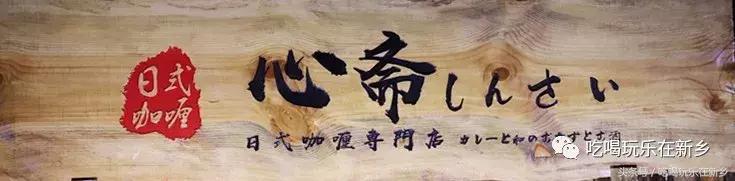 日式
咖喱
心斋しんさい
日式咖喱専門店 カレーと和のおかずとお酒
吃喝玩乐在新乡
头条号/吃喝玩乐在新乡